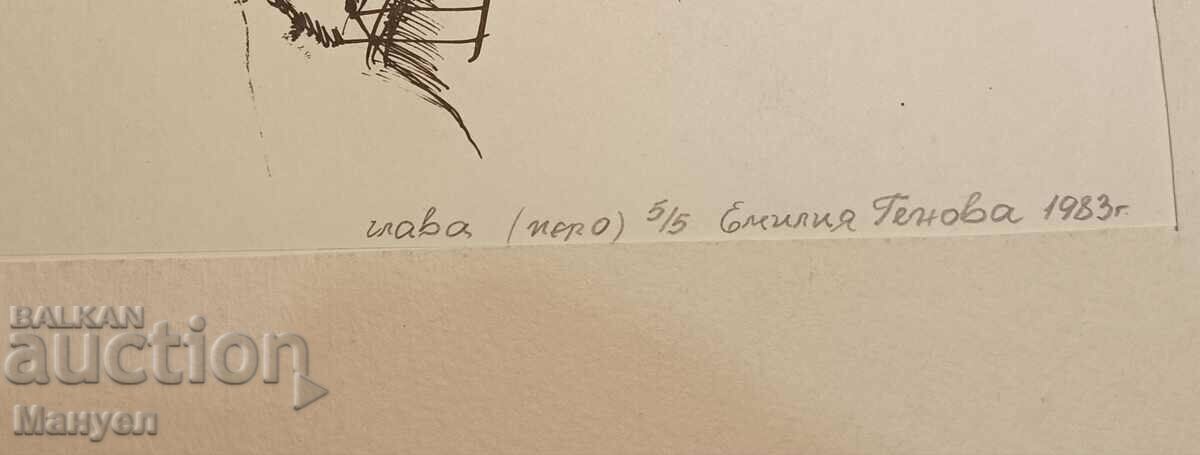 глава (перо) 5/5 Емилия Генова 1983г.
BALKAN
auction
Мануел